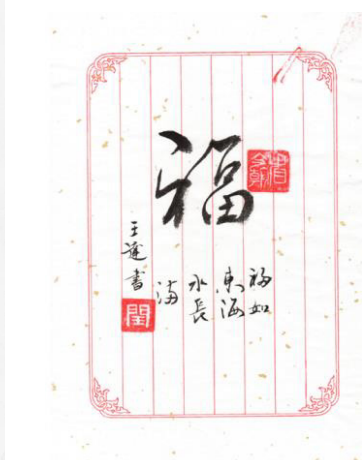 福
福如
東海
水長
满
王莲書